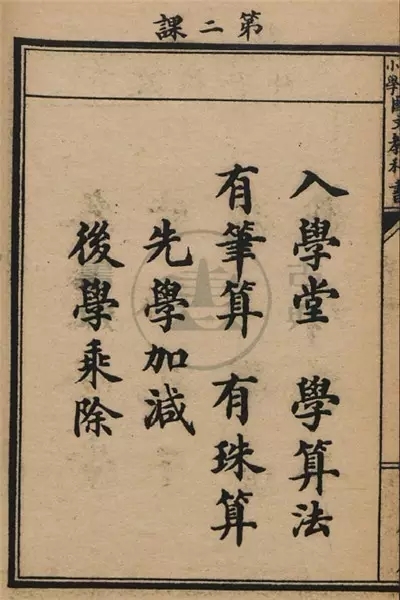 第二課
小學國文教科書
入學堂 學算法
有筆算 有珠算
先學加減
後學乘除